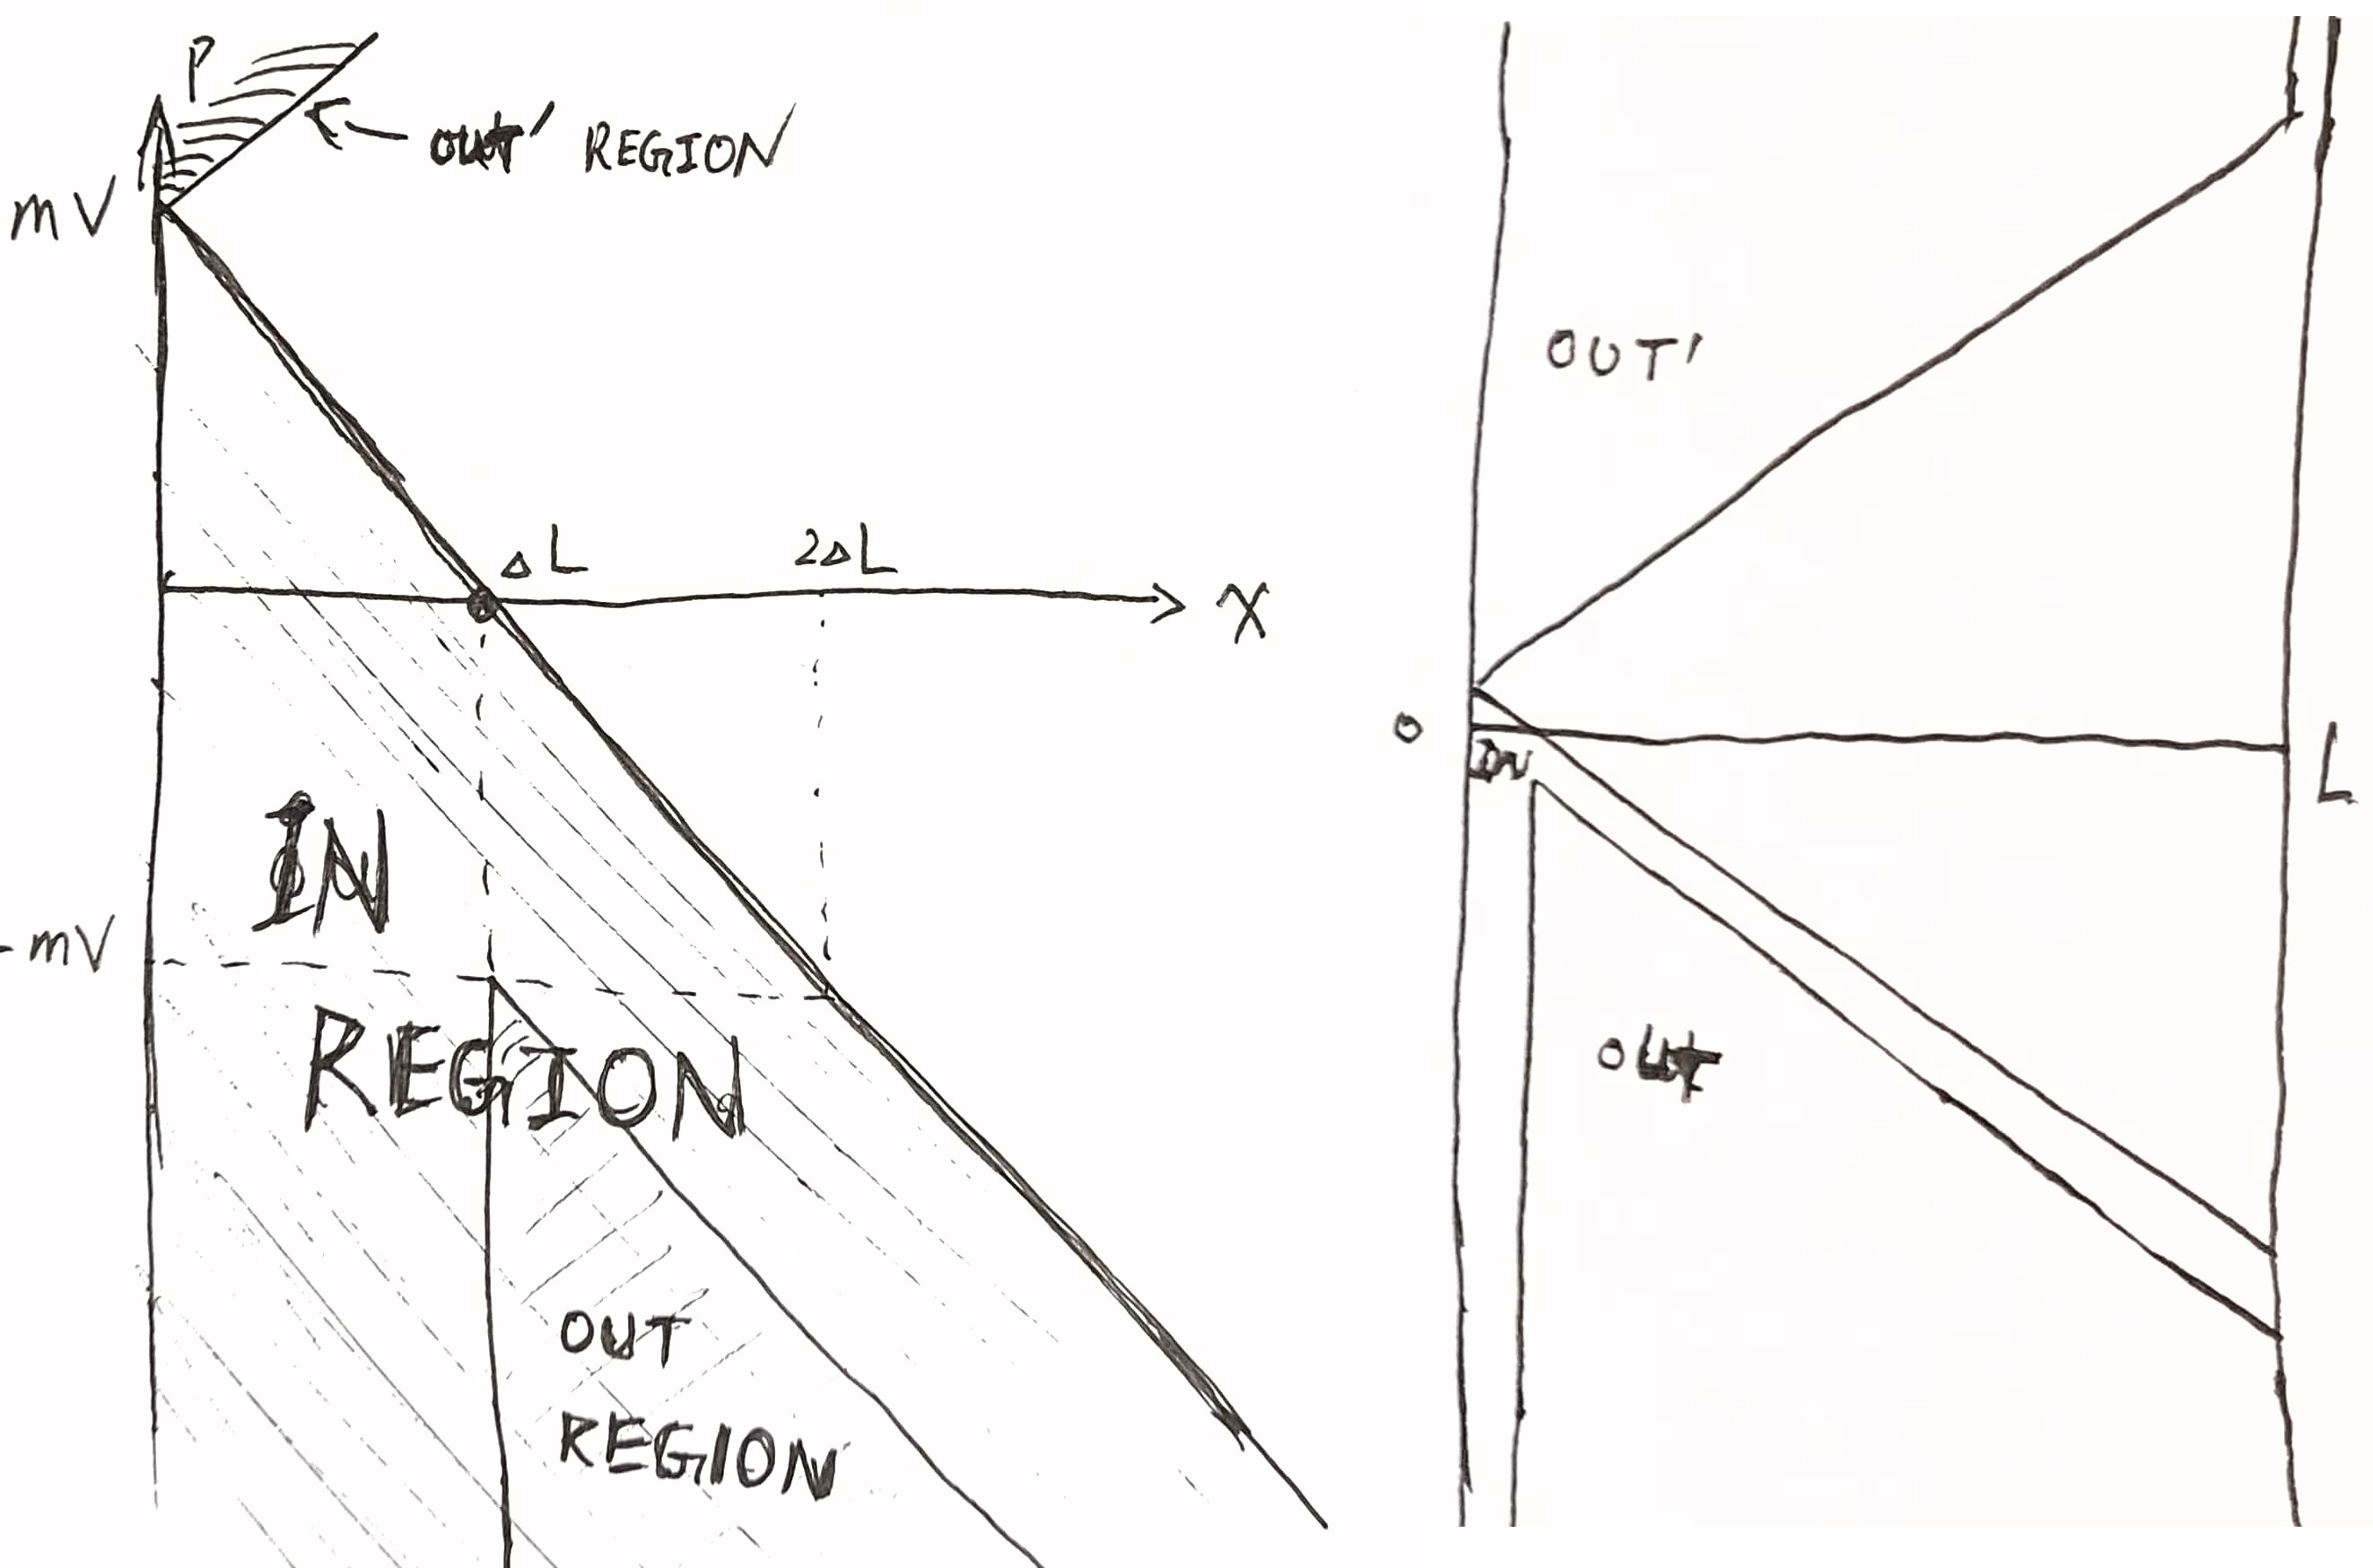 P
OUT' REGION
mV
ΔL
2ΔL
X
IN
-mV
REGION
OUT
REGION
OUT'
0
IN
L
OUT